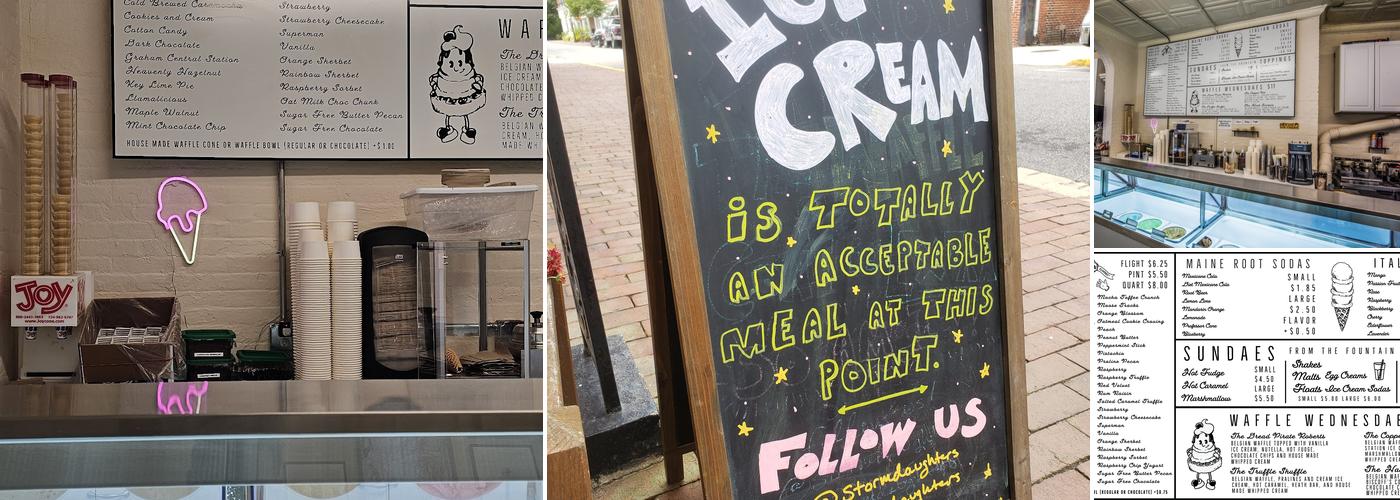 Cold Brewed
Cookies and Cream
Cotton Candy
Dark Chocolate
Graham Central Station
Heavenly Hazelnut
Key Lime Pie
Llamalicious
Maple Walnut
Mint Chocolate Chip
Strawberry
Strawberry Cheesecake
Superman
Vanilla
Orange Sherbet
Rainbow Sherbet
Raspberry Sorbet
Oat Milk Choc Chunk
Sugar Free Butter Pecan
Sugar Free Chocolate
HOUSE MADE WAFFLE CONE OR WAFFLE BOWL (REGULAR OR CHOCOLATE) +$1.00
WAF
The Dr
BELGIAN W
ICE CREAM
CHOCOLATE
WHIPPED C
The Tr
BELGIAN W
CREAM, HO
MADE WH
JOY
www.joycone.com
ICE
CREAM
is TOTALLY
AN ACCEPTABLE
MEAL AT THIS
POINT.
FOLLOW US
@Stormdaughters
SUNDAES
WAFFLE WEDNESDAYS $11
FLIGHT $6.25
PINT $5.50
QUART $8.00
Mocha Toffee Crunch
Moose Tracks
Orange Blossom
Oatmeal Cookie Craving
Peach
Peanut Butter
Peppermint Stick
Pistachio
Praline Pecan
Raspberry
Raspberry Truffle
Red Velvet
Rum Raisin
Salted Caramel Truffle
Strawberry
Strawberry Cheesecake
Superman
Vanilla
Orange Sherbet
Rainbow Sherbet
Raspberry Sorbet
Raspberry Chip Yogurt
Sugar Free Butter Pecan
Sugar Free Chocolate
(REGULAR OR CHOCOLATE) +$0.75
MAINE ROOT SODAS
Mexicane Cola
Diet Mexicane Cola
Root Beer
Lemon Lime
Mandarin Orange
Lemonade
Blueberry
SMALL
$1.85
LARGE
$2.50
FLAVOR
+$0.50
ITAL
Mango
Passion Fruit
Rose
Raspberry
Blackberry
Cherry
Elderflower
Lavender
SUNDAES
Hot Fudge
Hot Caramel
Marshmallow
SMALL
$4.50
LARGE
$5.50
FROM THE FOUNTAIN
Shakes
Malts Egg Creams
Floats Ice Cream Sodas
SMALL $5.00 LARGE $6.00
WAFFLE WEDNESDA
The Dread Pirate Roberts
BELGIAN WAFFLE TOPPED WITH VANILLA
ICE CREAM, NUTELLA, HOT FUDGE,
CHOCOLATE CHIPS AND HOUSE MADE
WHIPPED CREAM
The Truffle Shuffle
BELGIAN WAFFLE, PRALINES AND CREAM ICE
CREAM, HOT CARAMEL, HEATH BAR, AND HOUSE
MADE WHIPPED CREAM